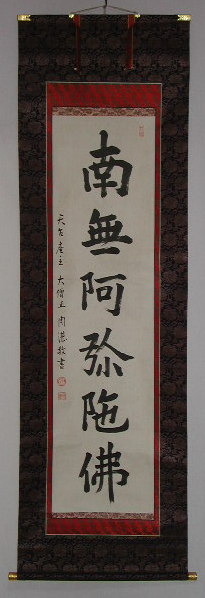 南無阿弥陀佛
天台座主 大僧正 周湛敬書